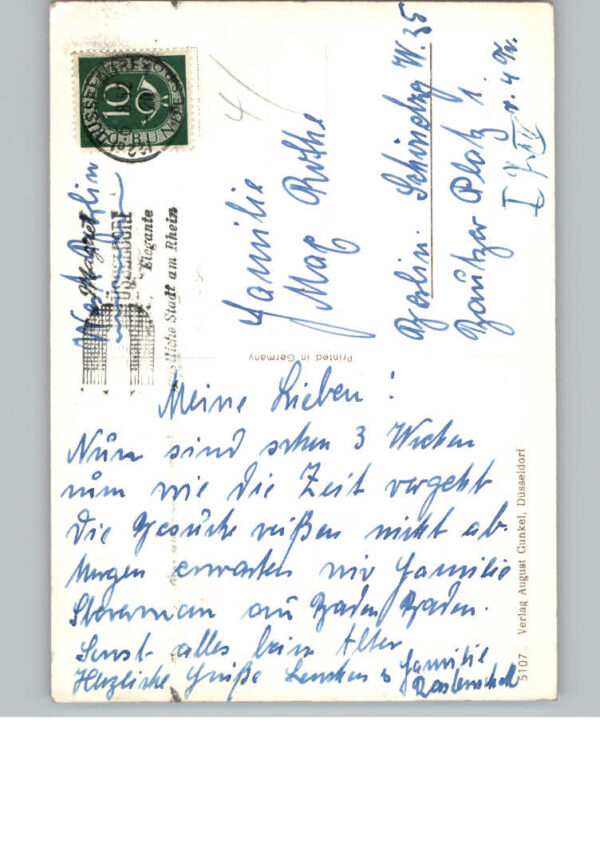 Meine Lieben!
Nun sind schon 3 Wochen
rum wie die Zeit vergeht
die Besuche reißen nicht ab.
Morgen erwarten wir Familie
aus Baden Baden.
Sonst alles beim Alten
Herzliche Grüße Lenchen u. Familie
Familie
Max Rothe
Berlin Schöneberg W. 35
Bautzer Platz 1
v. 4 Tr.
West Berlin
DÜSSELDORF
10
BUNDESPOST
DÜSSELDORF
Elegante
Stadt am Rhein
Printed in Germany
5107 Verlag August Gunkel, Düsseldorf